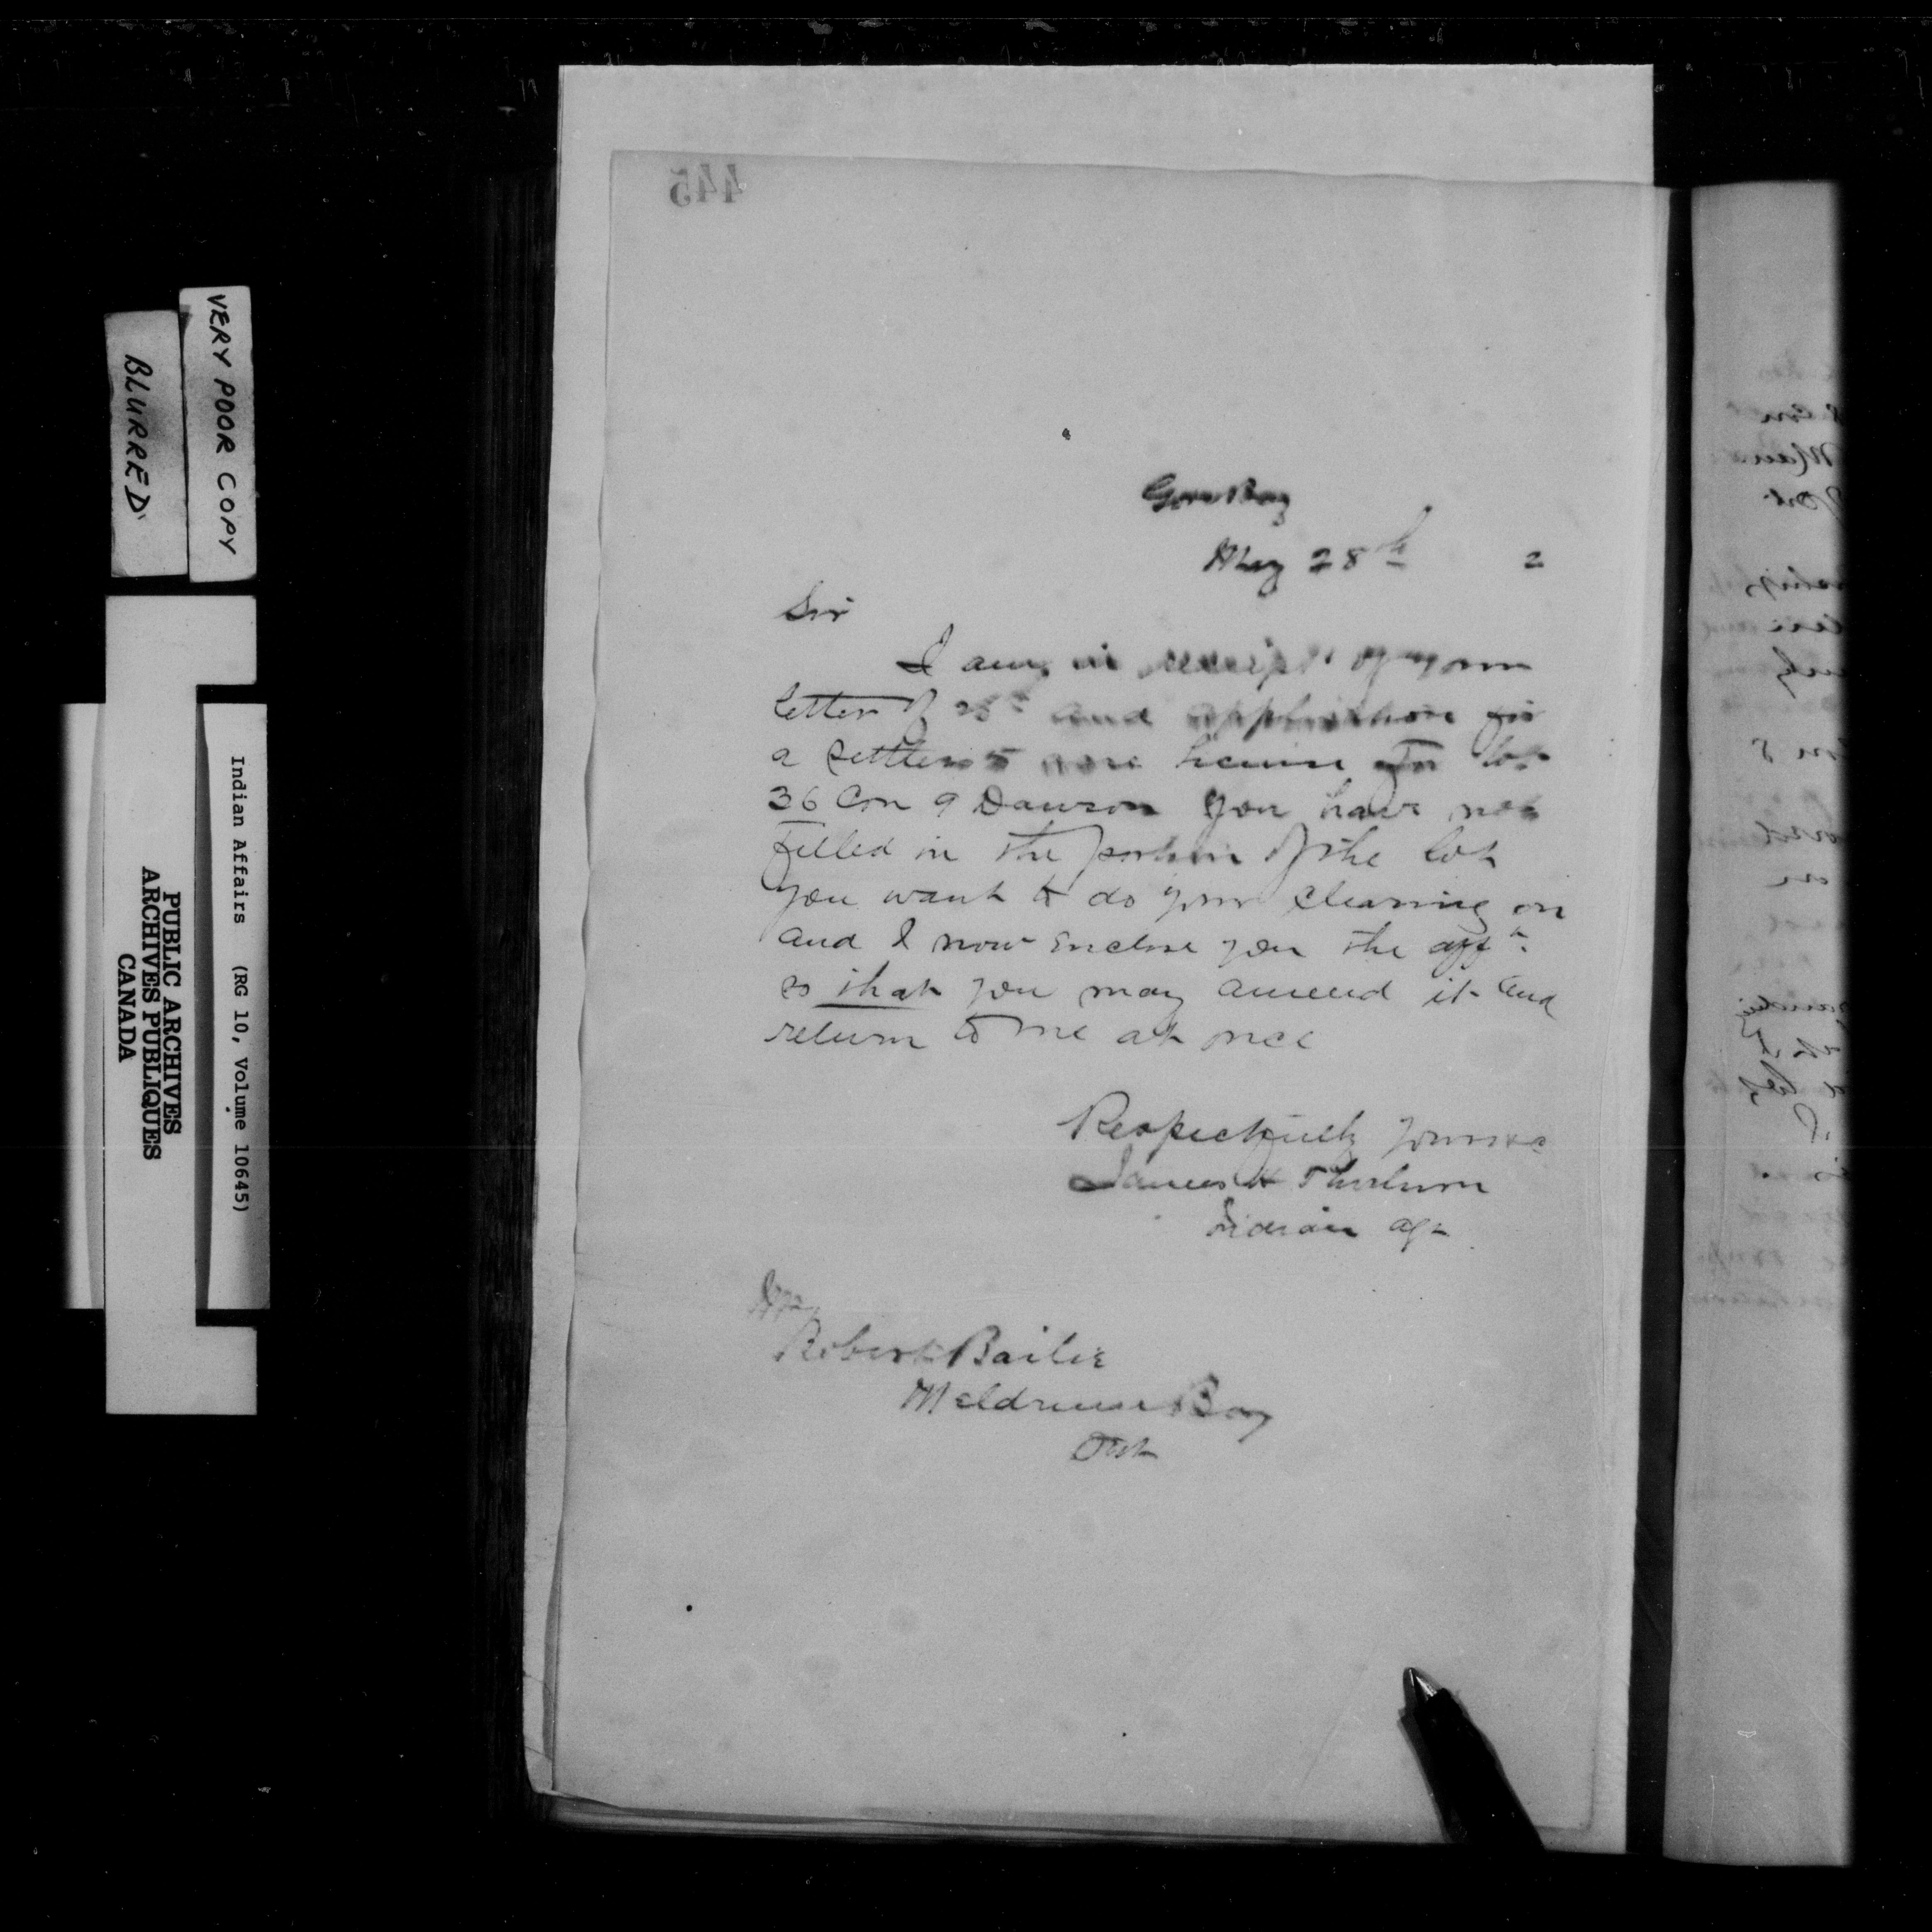 445
Gore Bay
May 28th 2
Sir
I am in receipt of your
letter of 25th and application for
a settlers 5 acre license for lot
36 Con 9 Dawson you have not
filled in the portion of the lot
you want to do your clearing on
and I now enclose you the appn.
so that you may amend it and
return to me at once
Respectfully yours
James H Thorburn
Indian agt
Mr
Robert Bailie
Meldrum Bay
Ont
VERY POOR COPY
BLURRED
Indian Affairs (RG 10, Volume 10645)
PUBLIC ARCHIVES
ARCHIVES PUBLIQUES
CANADA